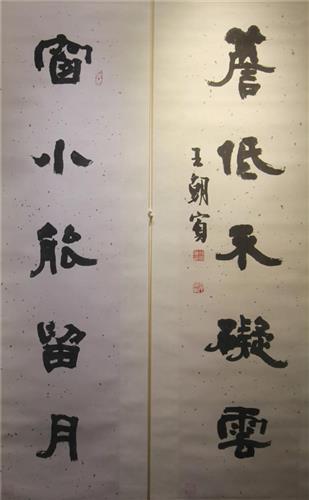 簷低不礙雲
王朝賓
窗小能留月